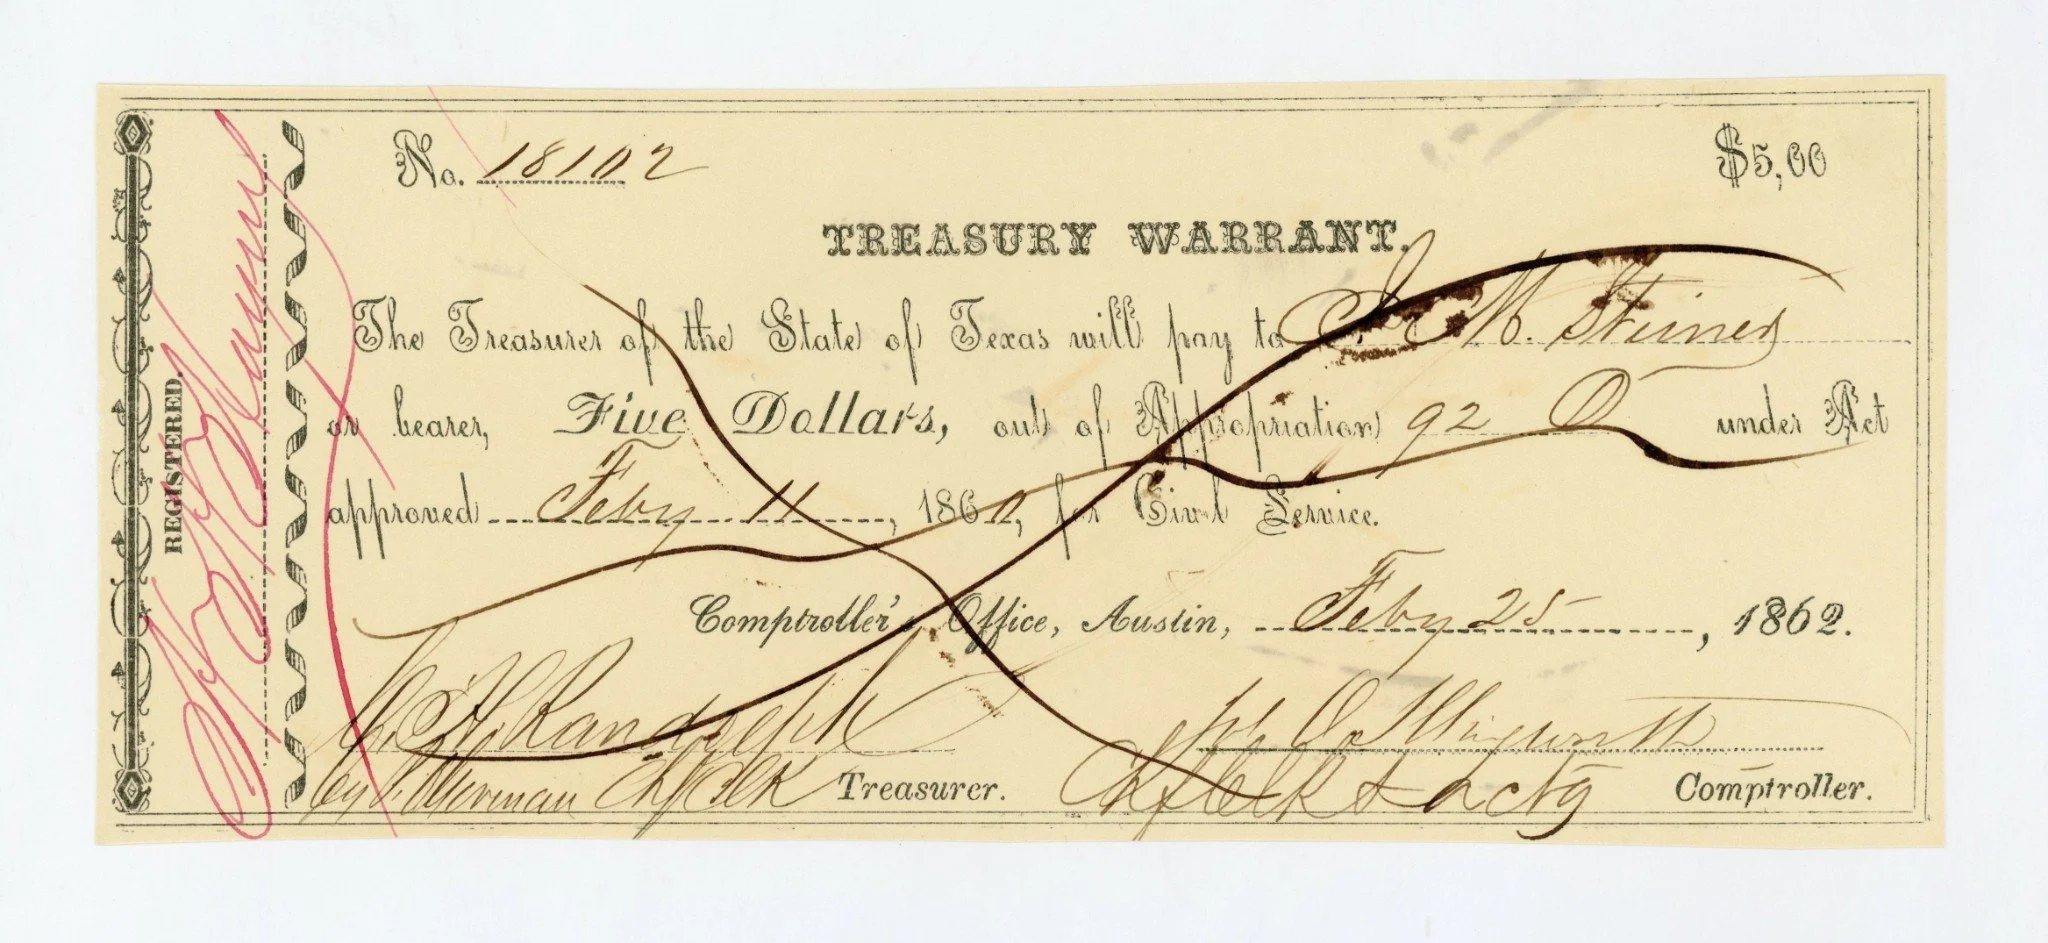 No. 18102 $5,00
TREASURY WARRANT.
The Treasurer of the State of Texas will pay to J. M. Steiner
or bearer, Five Dollars, out of Appropriation 92 O under Act
approved Feby 11, 1860, for Civil Service.
Comptroller's Office, Austin, Feby 25, 1862.
C. H. Randolph
Treasurer.
Ch Clk & actg Comptroller.
REGISTERED.